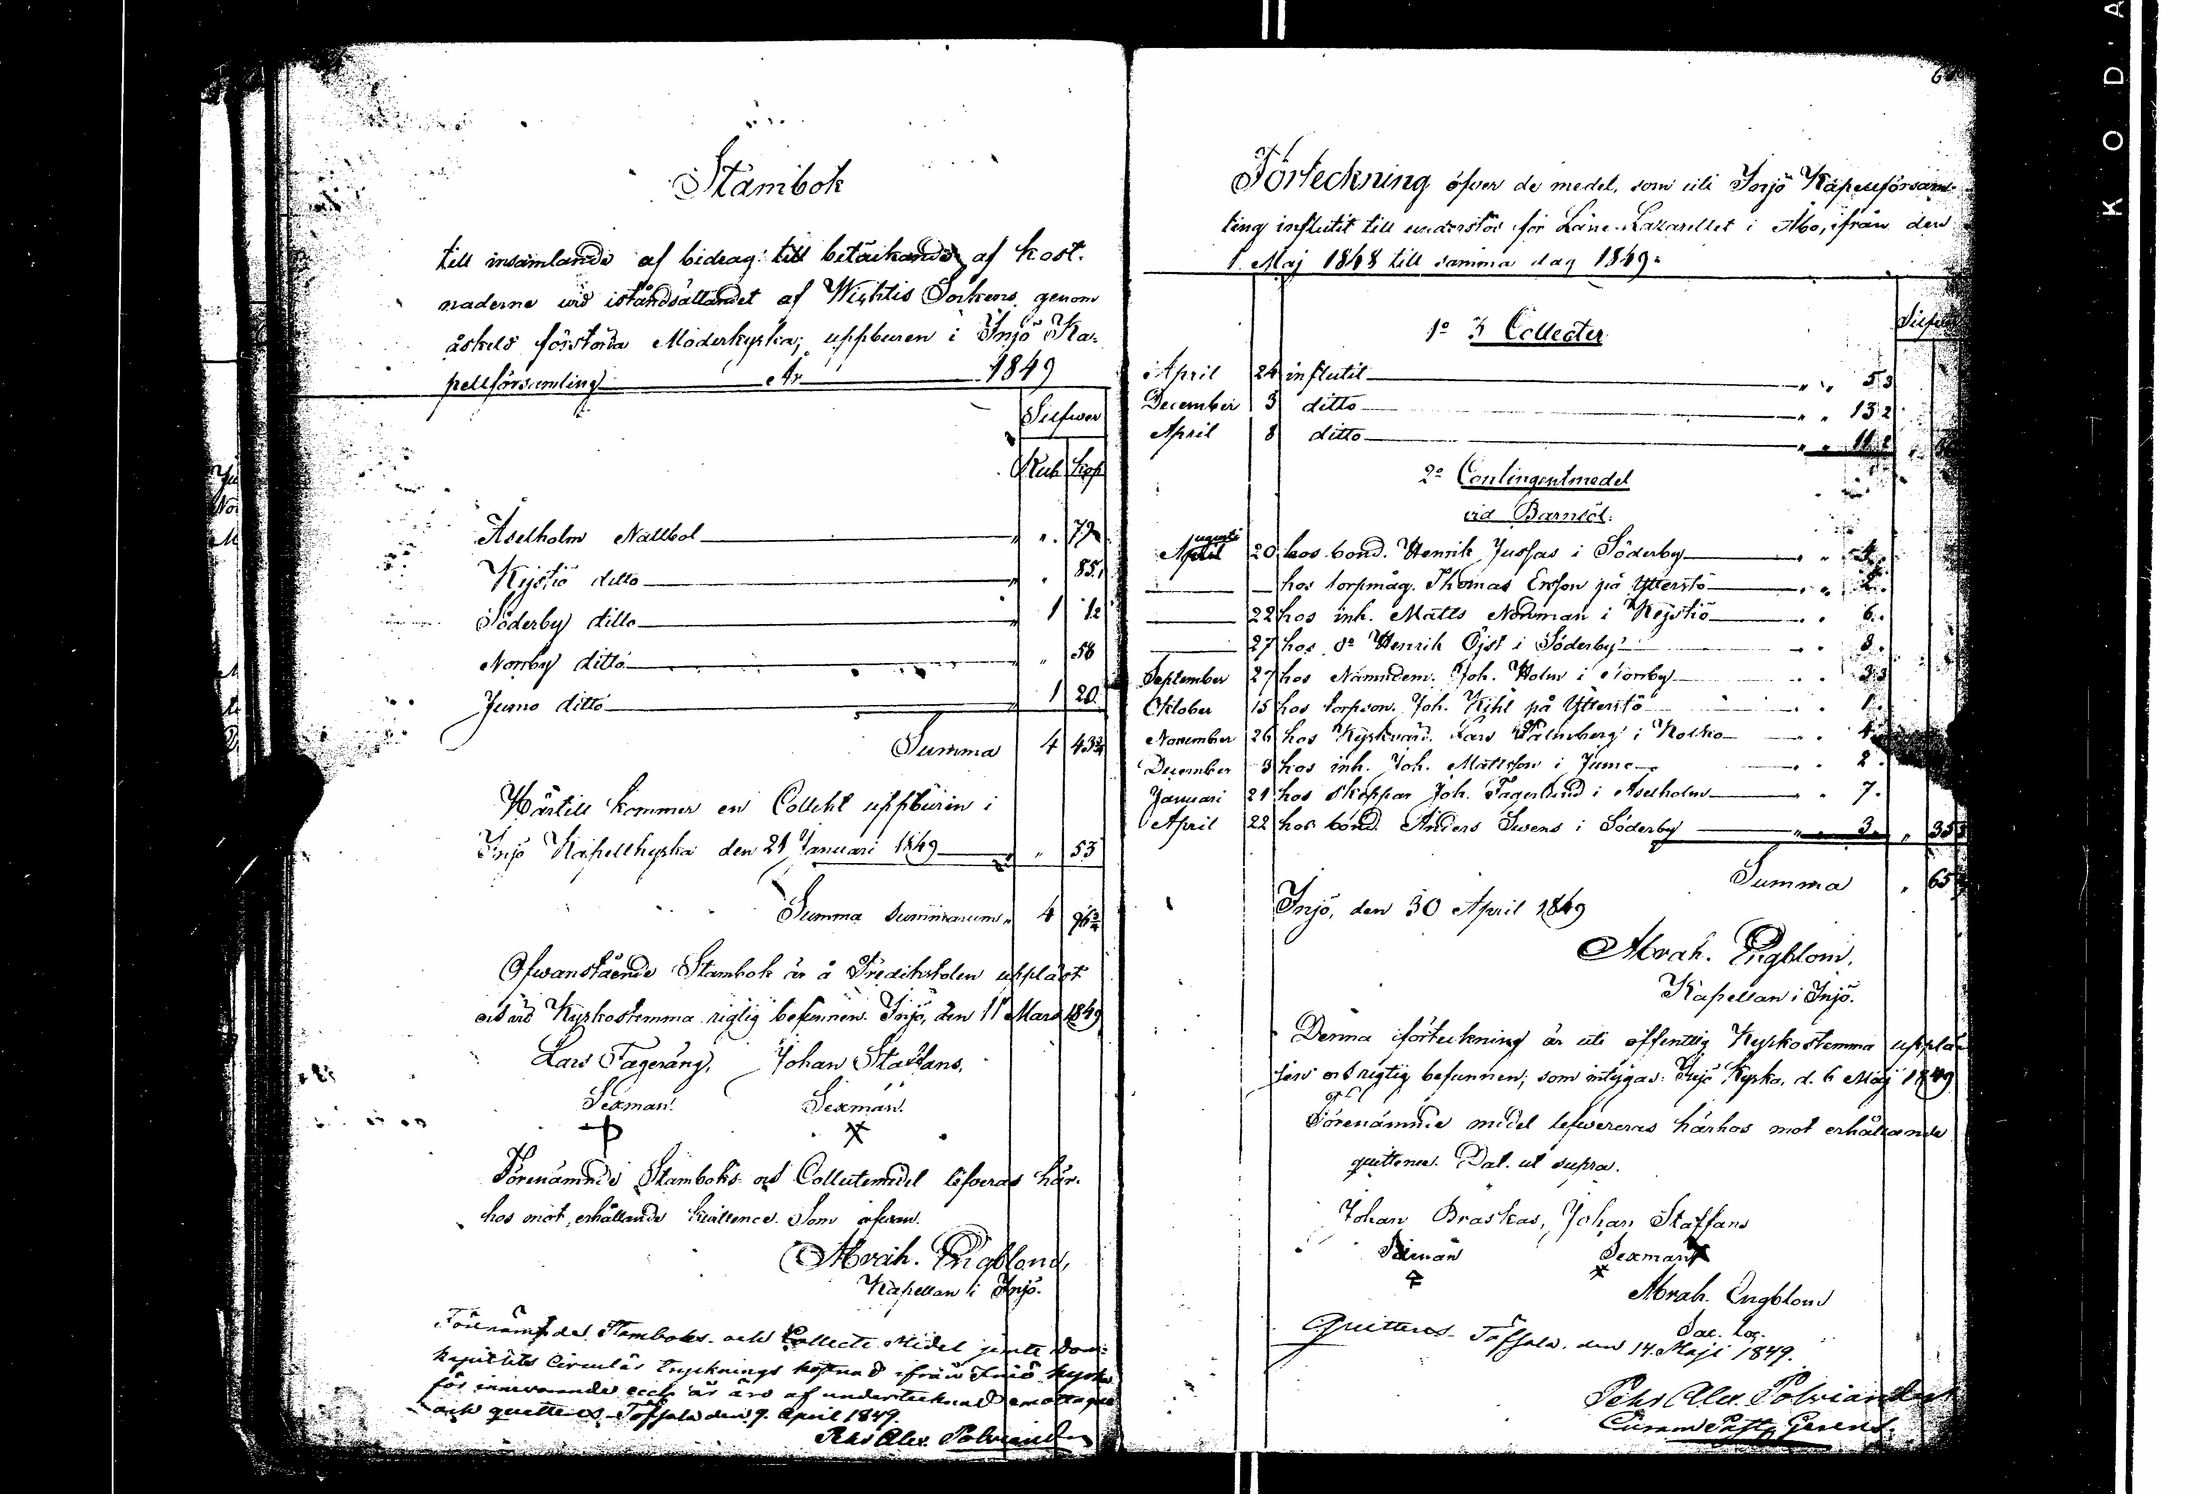 Stambok
till insamlande af bidrag till betäckande af kost-
naderne vid iståndsättandet af Wichtis Sockens genom
åskeld förstörda Moderkyrka; uppburen i Iniö Ka-
pellförsamling År 1849
Silfwer
Rub kop
Åselholm Nattbol " 79
Kejstiö ditto " 85
Söderby ditto 1
Norrby ditto " 58
Jumo ditto 1 20
Summa 4
Härtill kommer en Collekt uppburen i
Iniö Kapellkyrka den 21 Januari 1849 " 53
Summa summarum 4
Ofwanstående Stambok är å Predikstolen uppläst
och vid Kyrkostemma rigtig befunnen. Iniö, den 11 Mars 1849
Lars Fageräng, Johan Staffans,
Sexman. Sexman.
Förenämnde Stamboks- och Collectemedel lefveras här-
hos mot erhållande kvittence. Som ofwan.
Abrah. Engblom,
Kapellan i Iniö.
Förenämnde Stamboks- och Collecte Medel jemte Dom-
kapitlets Circulär Trycknings kostnad ifrån Iniö kyrka
för innevarande år äro af undertecknad emottagne
och quitteras. Töfsala den 9. April 1849.
Pehr Alex. Polviander
Förteckning öfver de medel, som uti Iniö Kapellförsam-
ling influtit till understöd för Läne-Lazarettet i Åbo, ifrån den
1 Maj 1848 till samma dag 1849.
Silfwer
1o 3 Collecter
April 24 influtit " " 53
December 3 ditto " " 132
April 8 ditto " "
2o Contingentmedel
vid Barnsöl.
Augusti
April 20 hos bond. Henrik Jussas i Söderby " " 4.
hos torpmåg. Thomas Ersson på Ytterstö " "
22 hos inh. Matts Nordman i Kejstiö " " 6.
27 hos do Henrik Öjst i Söderby " " 3.
September 27 hos Nämndem. Joh. Holm i Norrby " "
Oktober 15 hos torpson. Joh. Kihl på Ytterstö " " 1.
November 26 hos Kyrkvärd. Lars Palmberg i Kolko " " 4
December 3 hos inh. Joh. Mattsson i Jumo " " 2.
Januari 21 hos skeppar Joh. Fagerlund i Åselholm " " 7.
April 22 hos bond. Anders Swens i Söderby " " 3. "
Summa "
Iniö, den 30 April 1849
Abrah. Engblom,
Kapellan i Iniö.
Denna förteckning är uti offentlig Kyrkostemma upplä-
sen och rigtig befunnen; som intygas. Iniö Kyrka, d. 6 Maj 1849
Förenämnde medel lefvereras härhos mot erhållande
quittence. Dat. ut supra.
Johan Braskas, Johan Staffans
Sexman Sexman
Abrah. Engblom
Sac. Loc.
Quitteras. Töfsala, den 14. Maji 1849.
Pehr Alex. Polviander
Curam Past. Gerens.
KODA